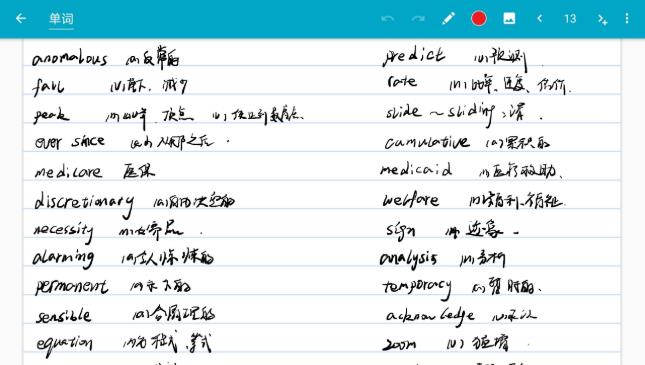 单词
13
anomalous (a)反常的
predict (v)预测
fall (v)落下、减少
rate (n)比率、速度、估价
peak (n)山峰、顶点 (v)
slide ~ sliding 滑
ever since 从那之后
cumulative (a)累积的
medicare 医保
medicaid (n)医疗救助
discretionary (a)自由决定的
welfare (n)福利、福祉
necessity (n)必需品
sign (n)迹象
alarming (a)令人惊慌的
analysis (n)分析
permanent (a)永久的
temporary (a)暂时的
sensible (a)合情理的
acknowledge (v)承认
equation (n)方程式、等式
zoom (v)猛增